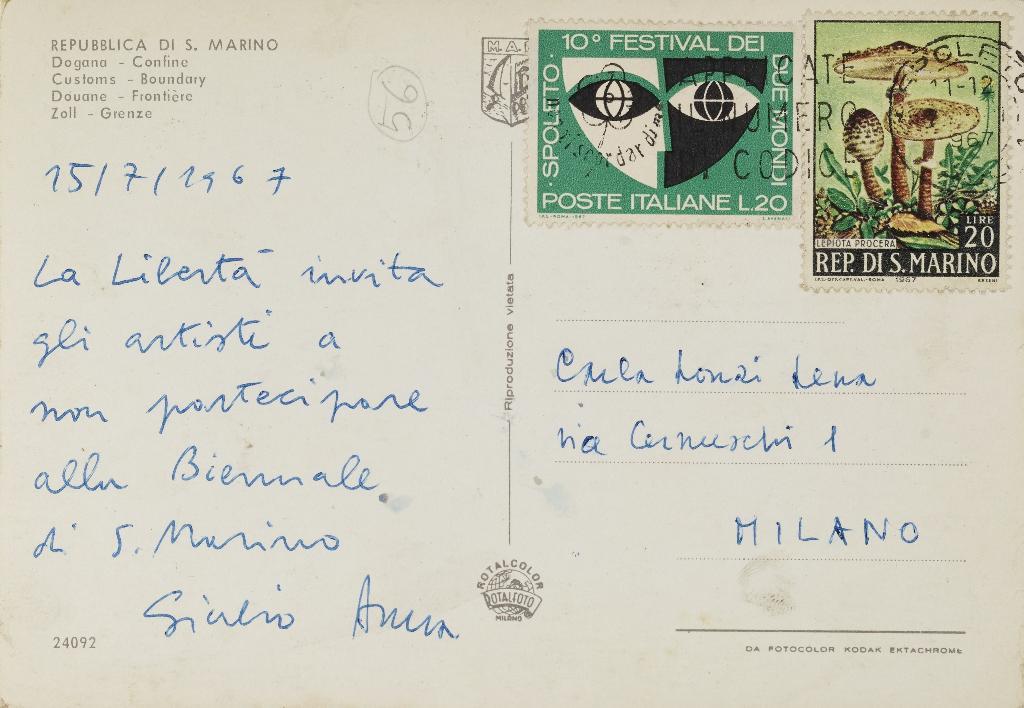 REPUBBLICA DI S. MARINO
Dogana - Confine
Customs - Boundary
Douane - Frontière
Zoll - Grenze
56
15/7/1967
La Libertà invita
gli artisti a
non partecipare
alla Biennale
di S. Marino
Giulio Anna
24092
Riproduzione vietata
ROTALCOLOR
ROTALFOTO
MILANO
10° FESTIVAL DEI
DUE MONDI
SPOLETO
POSTE ITALIANE L.20
I.P.S.-ROMA-1967
APPI
ATE
NUMERO
DI CODICE
11-12
967
LEPIOTA PROCERA
LIRE
20
REP. DI S. MARINO
1967
Carla Lonzi Lena
via Cernuschi 1
MILANO
DA FOTOCOLOR KODAK EKTACHROME